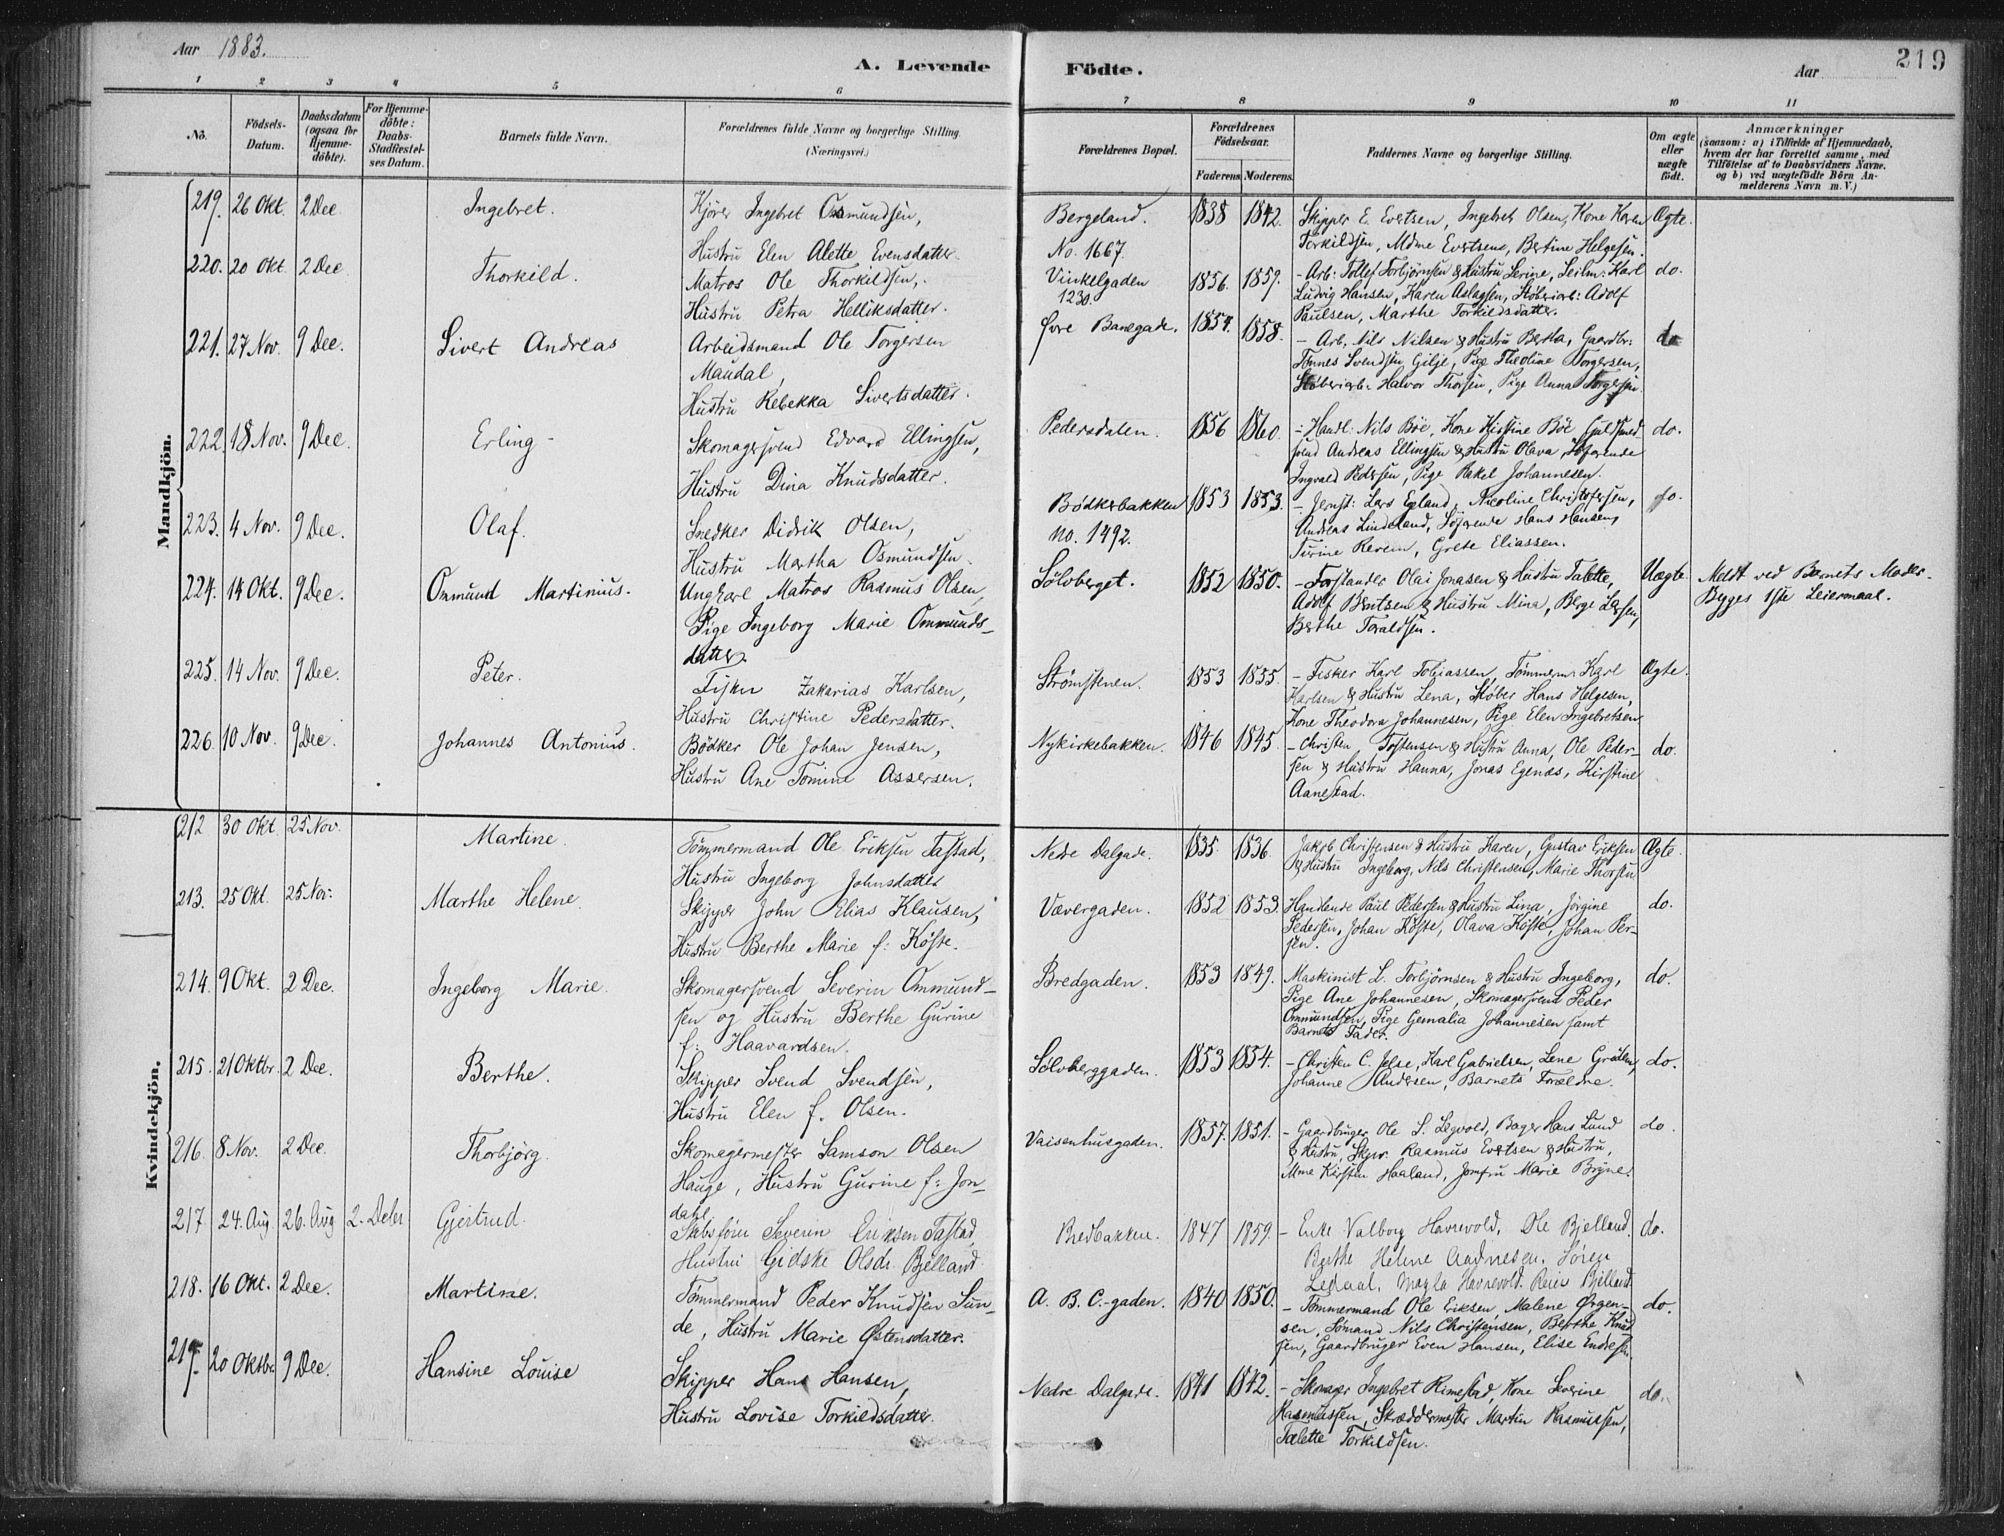 Aar 1883.
A. Levende
Födte.
Aar
219
1 2 3 4 5 6 7 8 9 10 11
No.
Födsels-Datum.
Daabsdatum (ogsaa for Hjemme-döbte).
For Hjemme-döbte: Daabs-Stadfæstel-ses Datum.
Barnets fulde Navn.
Forældrenes fulde Navne og borgerlige Stilling. (Næringsvei.)
Forældrenes Bopæl.
Forældrenes Födselsaar.
Faderens. Moderens.
Faddernes Navne og borgerlige Stilling.
Om ægte eller uægte födt.
Anmærkninger
(saasom: a) i Tilfælde af Hjemmedaab,
hvem der har forrettet samme, med
Tilföielse af to Daabsvidners Navne.
og b) ved uægtefödte Börn An-
melderens Navn m. V.)
Mandkjön.
219. 26 Okt. 2 Dec. Ingebret. Kjører Ingebret Osmundsen, Bergeland. 1838 1842. Skipper E. Evertsen, Ingebret Olsen, Kone Karen Ægte.
Hustru Elen Alette Evensdatter. No. 1667. Torkildsen, Mdme Evertsens, Bertine Helgesen.
220. 20 Okt. 2 Dec. Thorkild. Matros Ole Thorkildsen, Vinkelgaden 1856. 1859. – Arb: Tollef Torbjørnsen & Hustru Serine, Seilm: Karl do.
Hustru Petra Helliksdatter. 1230. Ludvig Hansen, Karen Aslagsen, Støberiarb: Adolf
Paulsen, Marthe Torkildsdatter.
221. 27 Nov. 9 Dec. Sivert Andreas Arbeidsmand Ole Torgersen Øvre Banegade. 1854. 1858. – Arb. Nils Nilsen & Hustru Bertha, Gaardbr: do
Maudal, Tønnes Svendsen Gilje, Pige Theoline Torgersen,
Hustru Rebekka Sivertsdatter. Støberiarb: Halvor Thorsen, Pige Anna Torgersen.
222. 18 Nov. 9 Dec. Erling – Skomagersvend Edvard Ellingsen, Pedersdalen. 1856 1860. – Handl: Nils Bøe, Kone Kirstine Böe Guldsmed do.
Hustru Dina Knudsdatter. svend Andreas Ellingsen & Hustru Olava, Søfarende
Ingvald Pedersen, Pige Rakel Johannesen.
223. 4 Nov. 9 Dec. Olaf. Snedker Didrik Olsen, Bødkerbakken 1853 1853. – Jernst: Lars Egland, Nicoline Christofersen, do.
Hustru Martha Osmundsen. no. 1492. Andreas Lindeland, Søfarende Hans Hansen,
Turine Reveim, Grete Eliassen.
224. 14 Okt. 9 Dec. Ommund Martinius. Ungkarl Matros Rasmus Olsen, Sölvberget. 1852 1850. – Forstander Olai Jonasen & Hustru Talette, Uægte Meldt ved Barnets Moder.
Pige Ingeborg Marie Ommunds- Adolf Bentsen & Hustru Mina, Berge Larsen, Begges 1ste Leiermaal.
datter. Berthe Toraldsen.
225. 14 Nov. 9 Dec. Peter. Fisker Zakarias Karlsen, Strømstenen. 1853 1855. – Fisker Karl Tobiassen, Tömmerm: Karl Ægte.
Hustru Christine Pedersdatter. Karlsen & Hustru Lena, Støber Hans Helgesen,
Kone Theodora Johannesen, Pige Elen Ingebretsen
226. 10 Nov. 9 Dec. Johannes Antonius. Bødker Ole Johan Jensen, Nykirkebakken. 1846 1845. – Christen Tostensen & Hustru Anna, Ole Peder- do.
Hustru Ane Tomine Assersen. sen & Hustru Hanna, Jonas Egenæs, Kirstine
Aanestad.
Kvindekjön.
212 30 Okt. 25 Nov. Martine. Tømmermand Ole Eriksen Tastad, Nedre Dalgade. 1835 1836. Jakob Christensen & Hustru Karen, Gustav Eriksen Ægte.
Hustru Ingeborg Johnsdatter & Hustru Ingeborg, Nils Christensen, Marie Thorsen
213. 25 Okt. 25 Nov: Marthe Helene. Skipper John Elias Klausen, Vævergaden. 1852 1853. Handlende Paul Pedersen & Hustru Lina, Jörgine do.
Hustru Berthe Marie f: Køste. Pedersen, Johan Köste, Olava Köste, Johan Per-
sen.
214. 9 Okt. 2 Dec. Ingeborg Marie. Skomagersvend Severin Ommund- Bredgaden. 1853 1849. Maskinist L. Torbjørnsen & Hustru Ingeborg, do.
sen og Hustru Berthe Gurine Pige Ane Johannesen, Skomagersvend Peder
f: Haavardsen. Ommundsen, Pige Gemalia Johannesen samt
Barnets Fader.
215. 21 Oktbr. 2 Dec. Berthe. Skipper Svend Svendsen, Sølvberggaden. 1853 1854. – Christen C. Jelse, Karl Gabrielsen, Lene do.
Hustru Elen f. Olsen. Johanne Andersen, Barnets Forældre.
216. 8 Nov. 2 Dec. Thorbjörg. Skomagermester Samson Olsen Vaisenhusgaden. 1857. 1851. – Gaardbruger Ole S. Legvold, Bager Hans Lund do.
Hauge, Hustru Gurine f: Jon- & Hustru, Skpr. Rasmus Evertsen & Hustru,
dahl. Mme Kirsten Haaland, Jomfru Marie Bryne.
217. 24. Aug. 26. Aug 2. Decbr Gjertrud. Skibsfører Severin Eriksen Tastad, Bredbakken. 1847 1859. – Enke Valborg Havrevold, Ole Bjelland. do.
Hustru Gidske Olsdr. Bjelland. Berthe Helene Aadnesen. Søren
Ledaal. Magla Havrevold. Reier Bjelland.
218. 16 Okt. 2 Dec. Martine. Tømmermand Peder Knudsen Sun- A. B. C.-gaden. 1840 1850. – Tømmermand Ole Eriksen, Malene Ørgen- do.
de, Hustru Marie Østensdatter. sen, Sømand Nils Christensen, Berthe Knud
sen, Gaardbruger Even Hansen, Elise Endresen.
219. 20 Oktbr. 9 Dec. Hansine Louise Skipper Hans Hansen, Nedre Dalgade. 1841 1842. – Skomager Ingebret Rimestad, Kone Severine do.
Hustru Lovise Torkildsdatter. Rasmussen, Skræddermester Martin Rasmussen,
Talette Torkildsen.